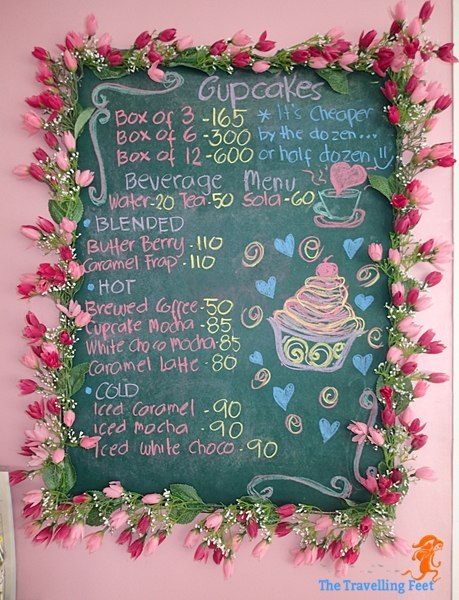 Cupcakes
Box of 3 - 165 * It's Cheaper
Box of 6 - 300 by the dozen...
Box of 12 - 600 or half dozen
Beverage Menu
Water - 20 Tea - 50 Soda - 60
• BLENDED
Butter Berry - 110
Caramel Frap - 110
• HOT
Brewed Coffee - 50
Cupcake Mocha - 85
White Choco Mocha - 85
Caramel Latte - 80
• COLD
Iced Caramel - 90
Iced Mocha - 90
Iced White Choco - 90
The Travelling Feet